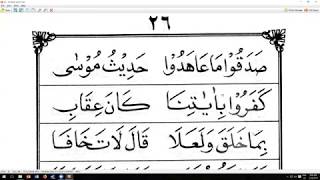 ٢٦
صَدَقُوْا مَا عَاهَدُوْا حَدِيْثُ مُوْسٰى
كَفَرُوْا بِاٰيَاتِنَا كَانَ عِقَابِ
بِمَا خَلَقَ وَلَعَلَا قَالَ لَا تَخَافَا